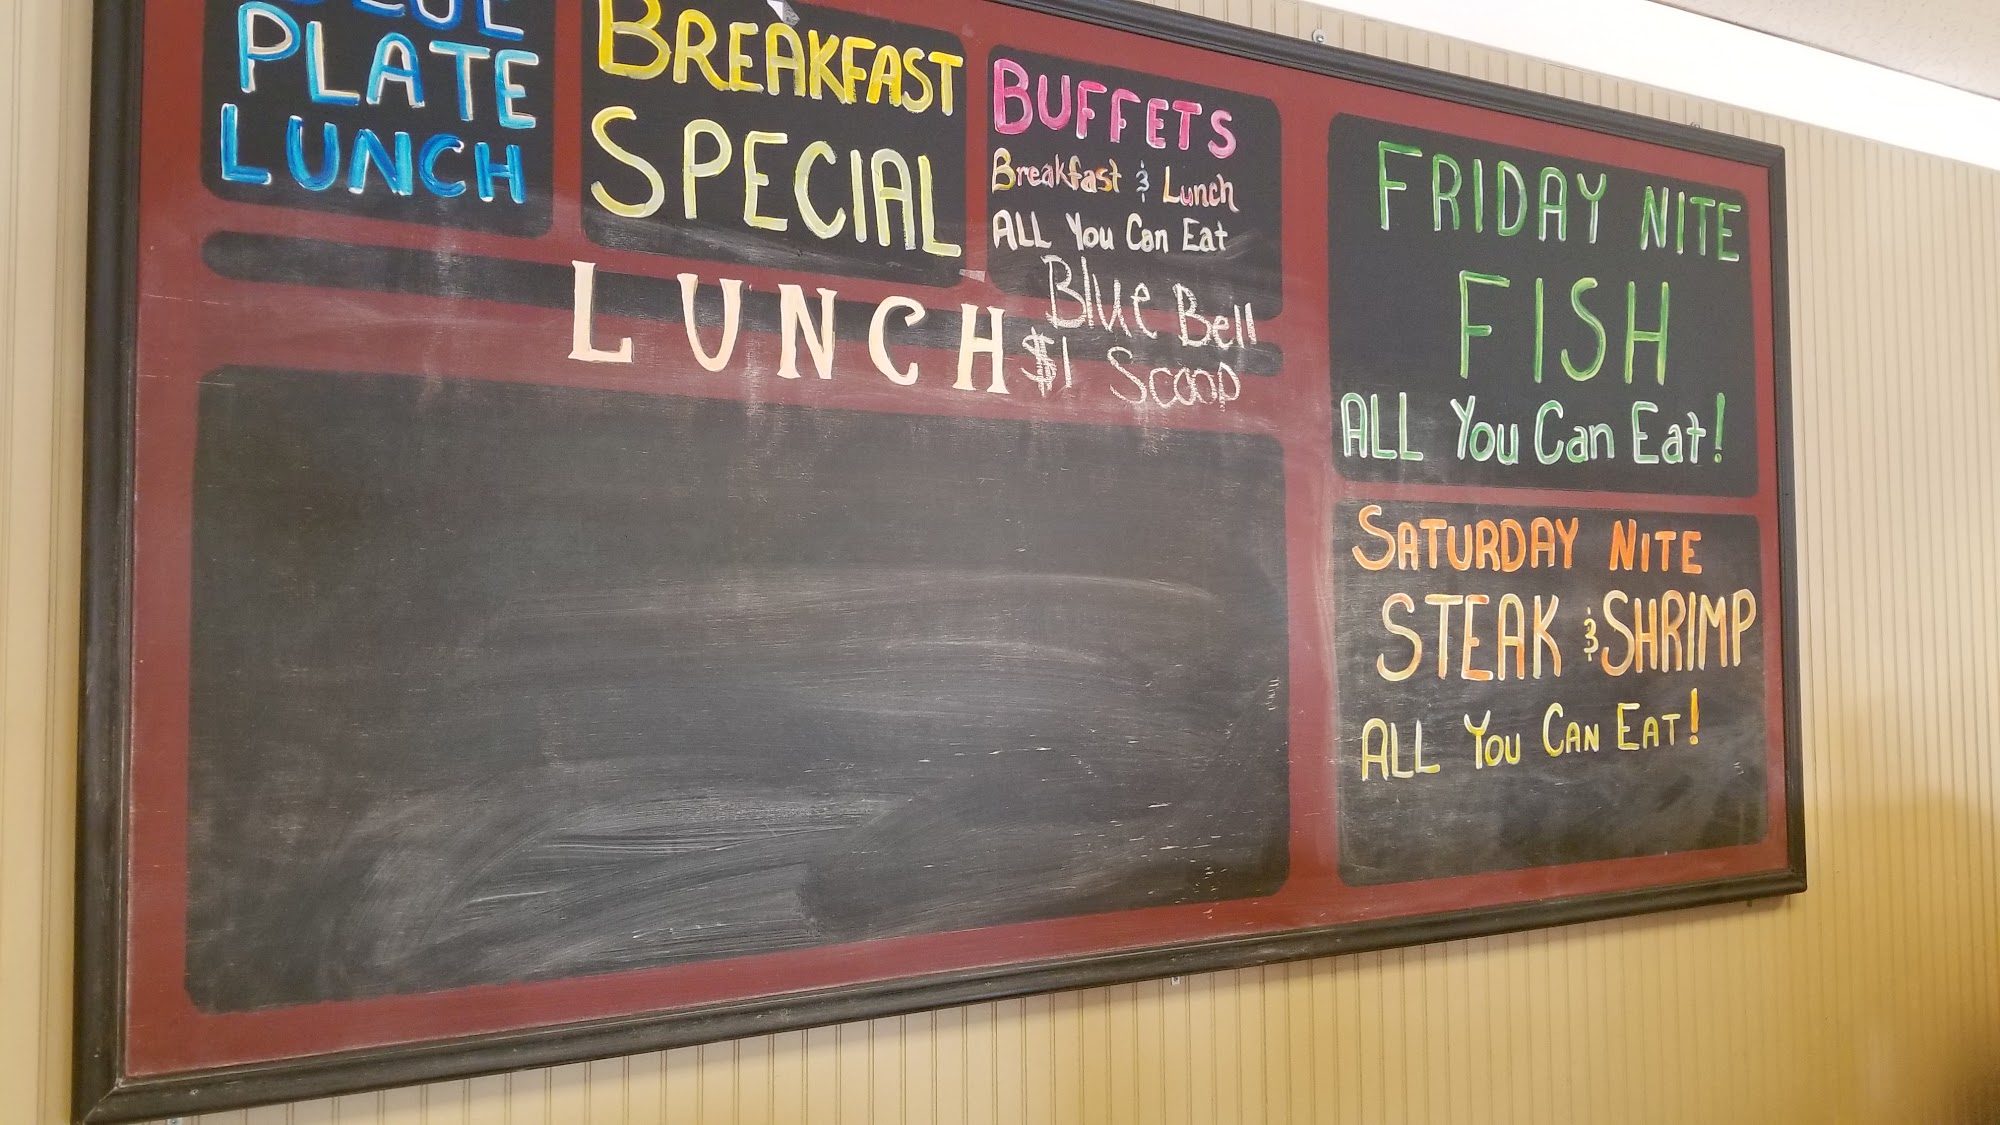 BLUE
PLATE
LUNCH
BREAKFAST
SPECIAL
BUFFETS
Breakfast & Lunch
ALL You Can Eat
Blue Bell
$1 Scoop
LUNCH
FRIDAY NITE
FISH
ALL You Can Eat!
SATURDAY NITE
STEAK & SHRIMP
ALL YOU CAN EAT!